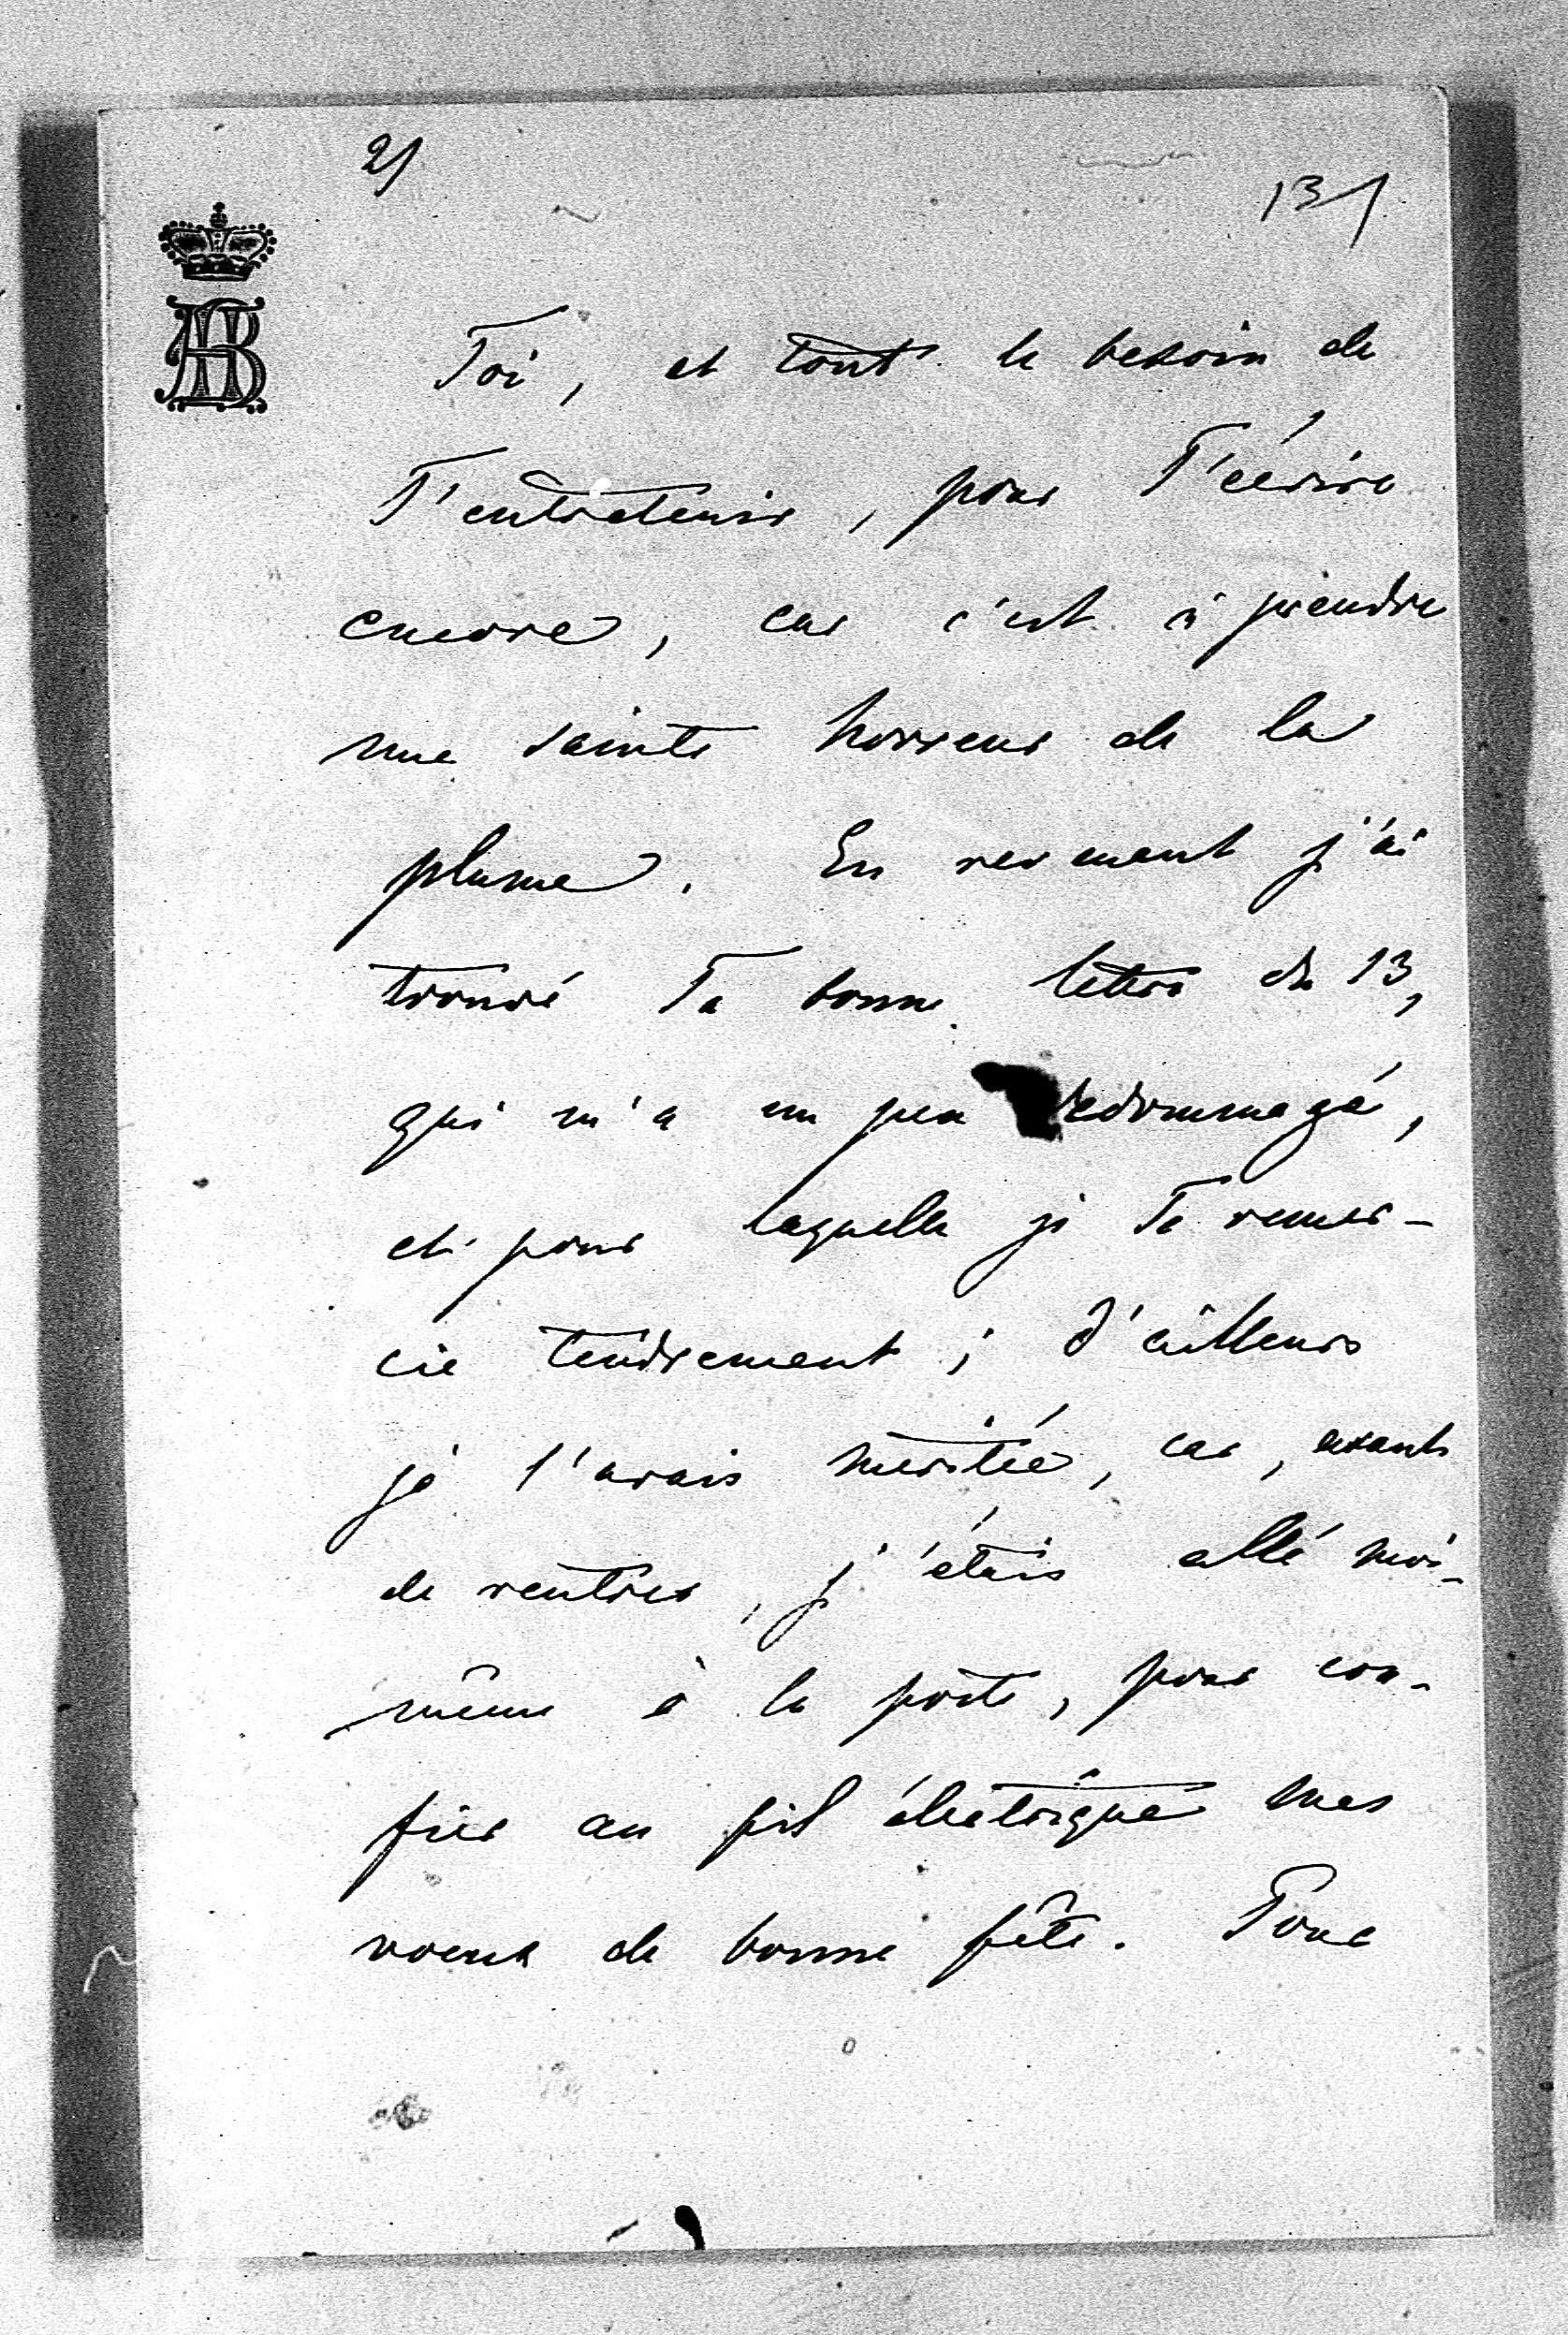 2)
131
AB
Toi, et tout le besoin de
T'entretenir, pour T'écrire
encore, car c'est à prendre
une sainte horreur de la
plume. En revenant j'ai
trouvé Ta bonne lettre du 13,
qui m'a un peu dedommagé,
et pour laquelle je Te remer-
cie tendrement; d'ailleurs
je l'avais méritée, car, avant
de rentrer, j'étais allé moi-
même à la poste, pour con-
fier au fil électrique mes
voeux de bonne fête. Pour